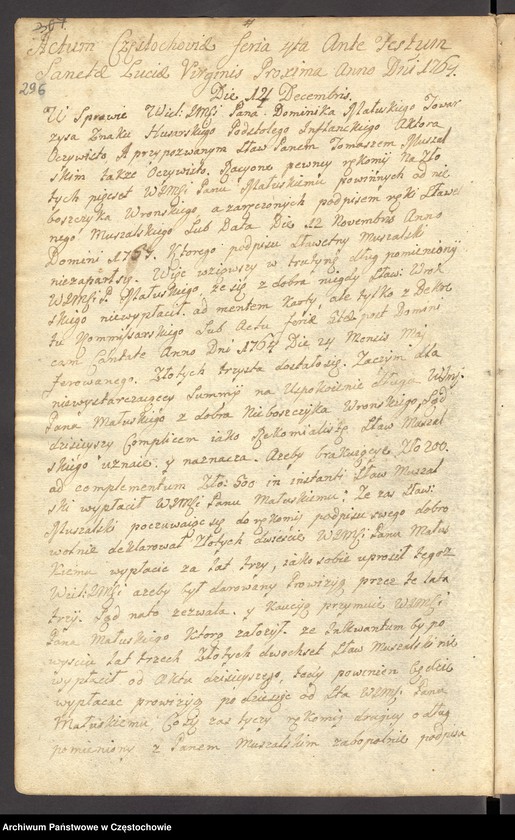 Actum Częstochoviæ feria 4ta Ante Festum
Sanctæ Luciæ Virginis Proxima Anno Dni 1764.
296
Die 12 Decembris.
W Sprawie Wiel: JMSci Pana Dominika Małuskiego Towar
zysza Znaku Husarskiego Inflanckiego Aktora
Oczywisto, A przypozwanym Sław Panem Tomaszem Muszal
skim także Oczywisto, Racyone pewney rękomij na Zło
tych pięcset WJMSci Panu Małuskiemu powinnych od nie
boszczyka Wronskiego a zaręczonych podpisem ręki Sławet
nego Muszalskiego Sub Data Die 12 Novembris Anno
Domini 1764. Ktorego podpisu Sławetny Muszalski
niezaparł się. Więc wziąwszy w trutynę dług pomieniony
WJMSci P. Małuskiego, że się z dobra niegdy Sław: Wron
skiego niewypłacił ad mentem karty, ale tylko z Dekre
tu Kommissarskiego Sub Actu feria post Domini
cam Cantate Anno Dni 1764 Die 24 Mensis Maj
ferowanego. Złotych trzysta dostało się. Zaczym dla
niewystarczaiącey Summy na Uspokoienie długu WJMSci
Pana Małuskiego z dobra Nieboszczyka Wronskiego, Sąd
dzisieyszy Complicem iako Sław Muszal
skiego uznaie y naznacza. Ażeby brakuiące Zło 200.
ad complementum Zło: 500 in instanti Sław Muszal
ski wypłacił WJMSci Panu Małuskiemu; Że zas Sław:
Muszalski poczuwaiąc się do rękomij podpisu swego dobro
wolnie deklarował Złotych dwieście WJMSci Panu Małus
kiemu wypłacic za lat trzy, iako sobie uprosił tegoż
Wiel: JMSci ażeby był darowany Prowizyą przez te lata
trzy. Sąd na to zezwala. y kaucyą przymuie WJMSci
Pana Małuskiego Ktorą założył. że Inkwantum by po
wysciu lat trzech Złotych dwochset Sław Muszalski nie
wypłacił od Aktu dzisieyszego, tedy powinien będzie
wypłacac prowizyą po dziesięc od Sta WJMSci Panu
Małuskiemu Coż zas tyczy rękomij drugiey o dług
pomieniony z Panem Muszalskim zabopolnie podpisa
Archiwum Państwowe w Częstochowie